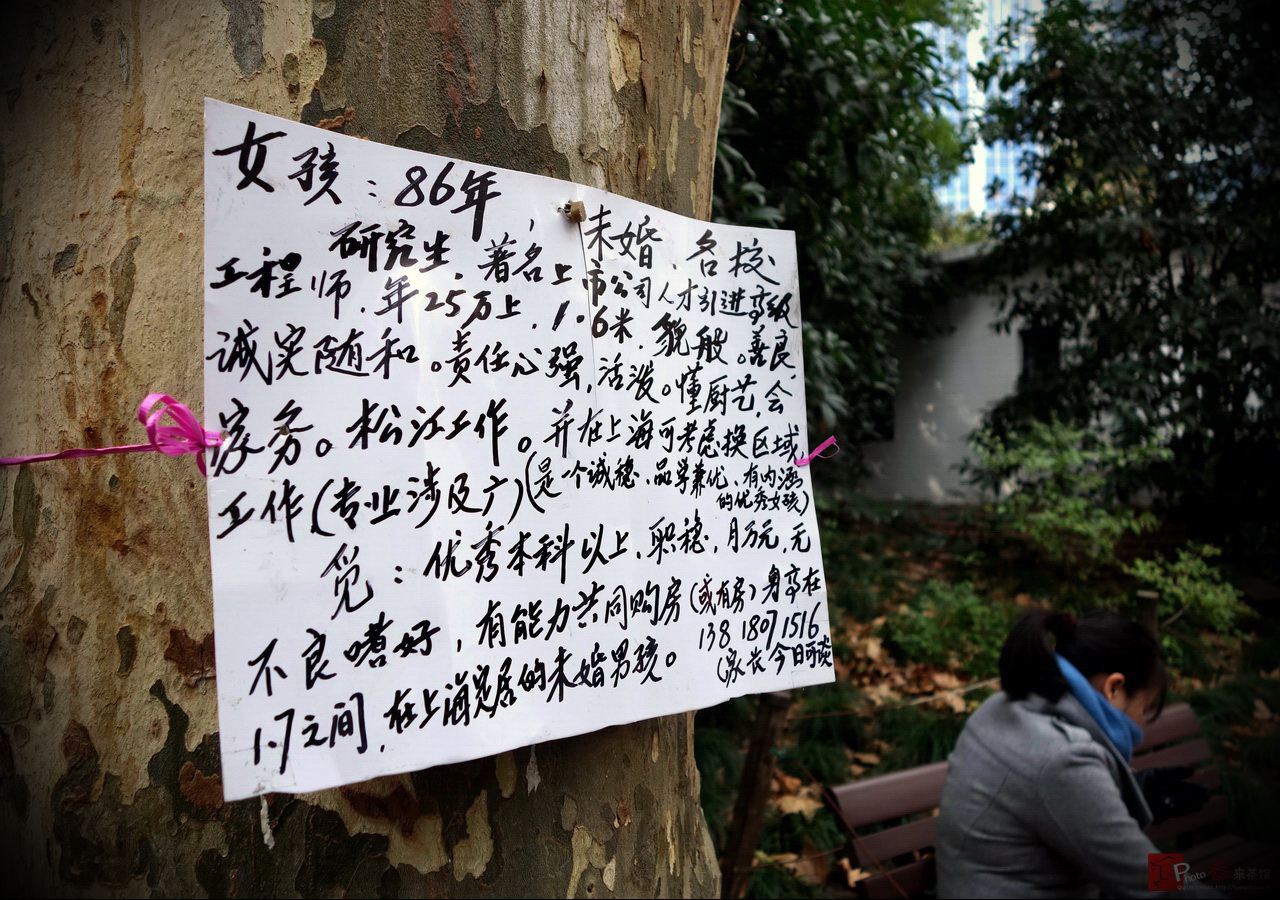 女孩：86年，未婚、名校
研究生、著名上市公司人才引进高级
工程师．年25万上．1.6米．貌般。善良
诚实随和。责任心强，活泼。懂厨艺，会
家务。松江工作。并在上海可考虑换区域
工作(专业涉及广)(是一个诚稳、品学兼优、有内涵
的优秀女孩)
觅：优秀本科以上．职稳，月万元，无
不良嗜好，有能力共同购房(或有房)身高在
1.7之间，在上海定居的未婚男孩。
138 1807 1516
(家长今日可谈
Photo
来茶馆